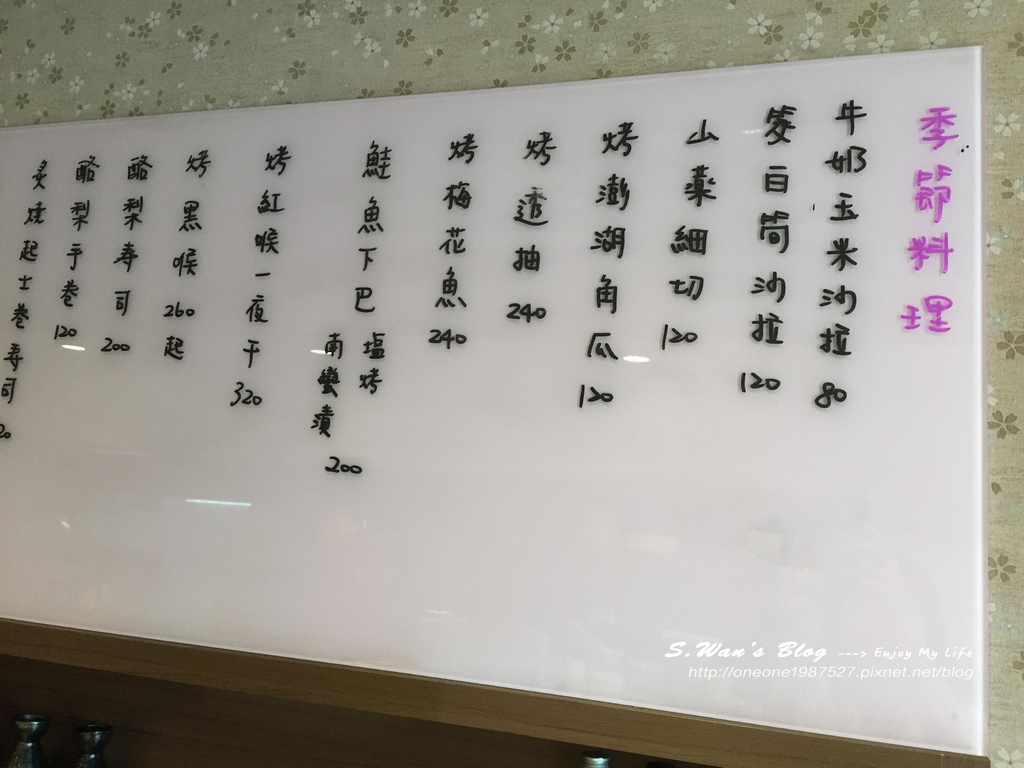 季節料理
牛奶玉米沙拉 80
筊白筒沙拉 120
山藥細切 120
烤澎湖角瓜 120
烤透抽 240
烤梅花魚 240
鮭魚下巴 塩烤
南蠻漬
200
烤紅喉一夜干 320
烤黑喉 260起
酪梨壽司 200
酪梨手卷 120
炙燒起士卷壽司
S.Wan's Blog ---> Enjoy My Life
http://oneone1987527.pixnet.net/blog